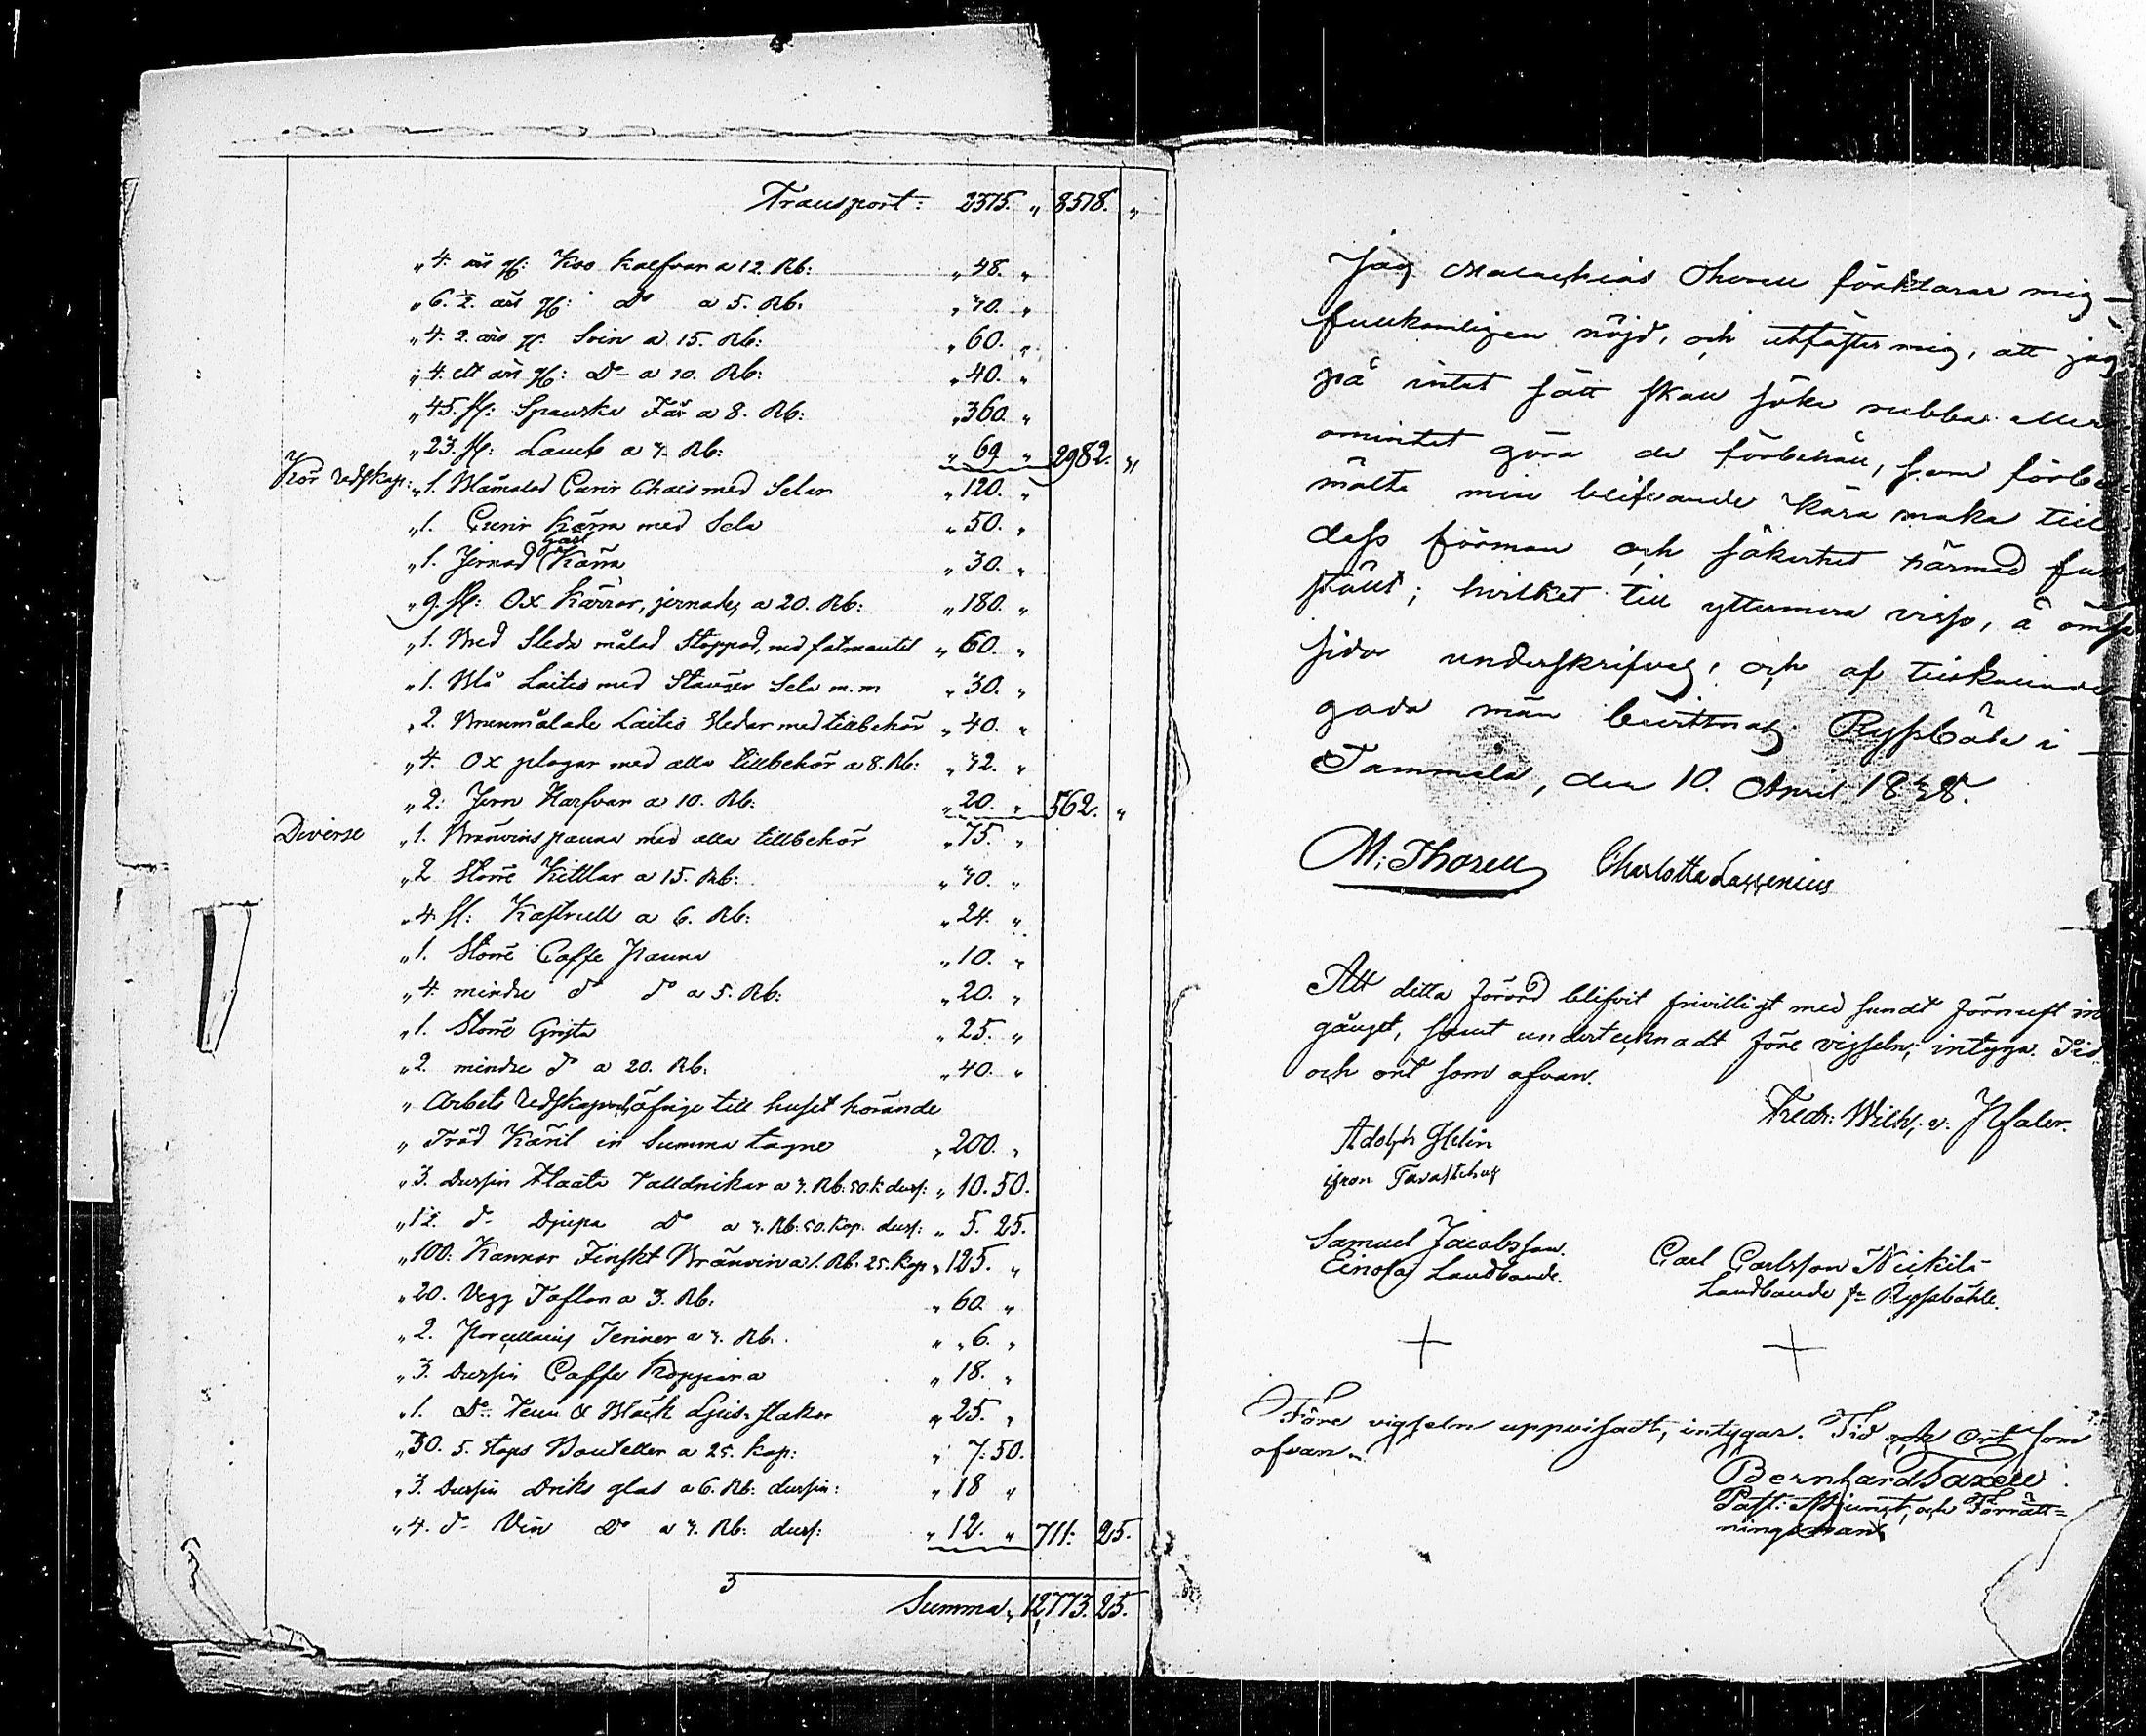 Transport: 2375. „ 8518. „
„ 4. års gl: Koo kalfvar a 12. Rb: „ 48. „
„ 6. ½. års gl: Do a 5. Rb. „ 30. „
„ 4. 2. års gl. Svin a 15. Rb: „ 60. „
„ 4. ett års gl: Do a 10. Rb: „ 40. „
„ 45. st: Spanska Får a 8. Rb: „ 360. „
„ 23. st: Lamb a 3. Rb: „ 69 „ 2982. „
Kör redskap: „ 1. Blåmålad Curir Chais med Selar „ 120. „
„ 1. Curir Kärra med Sela „ 50. „
gårds
„ 1. Jernad Kärra „ 30. „
„ 9. st: Ox Kärror, jernade, a 20. Rb: „ 180. „
„ 1. Bred Släda målad Stoppad, med fotmantel „ 60. „
„ 1. Blå Laitio med Stänger Sela m. m „ 30. „
„ 2. Brunmålade Laitio Sledar med tillbehör „ 40. „
„ 4. Ox plogar med alla tillbehör a 8. Rb: „ 32. „
„ 2. Jern Harfvar a 10. Rb: „ 20. „ 562. „
Diverse „ 1. Bränvins panna med alla tillbehör „ 75. „
„ 2 Större Kittlar a 15. Rb: „ 30. „
„ 4 st: Kastrull a 6. Rb: „ 24. „
„ 1. Större Caffe Panna „ 10. „
„ 4. mindre do do a 5. Rb: „ 20. „
„ 1. Större Gryta „ 25. „
„ 2. mindre do a 20. Rb. „ 40. „
„ Arbets redskap och öfrige till huset hörande
„ Träd Käril in Summa tagne „ 200. „
„ 3. Dussin Flata Talldrikar a 3. Rb: 50. k. duss: „ 10. 50.
„ 1½. do Djupa Do a 3. Rb: 50. Kop. duss: „ 5. 25.
„ 100: Kannor Finskt Bränvin a 1. Rb. 25. Kop „ 125. „
„ 20. Vegg Taflor a 3. Rb. „ 60. „
„ 2. Porcellains Teriner a 3. Rb. „ „ 6. „
„ 3. Dussin Caffe Koppar a „ 18. „
„ 1. Do Tenn & Bläck Ljus-stakar „ 25. „
„ 30. 5. stops Bouteller a 25. Kop: „ 7:50.
„ 3. Dussin Driks glas a 6. Rb: dussin: „ 18 „
„ 4. do Vin Do a 3. Rb: duss: „ 12. „ 711: 25.
Summa, 12,773. 25.
Jag Malachias Thorell förklarar mig
fullkomligen nöjd, och utfäster mig, att jag
på intet sätt skall söka rubba eller
omintet göra de förbehåll, som förbe
mälte min blifvande kära maka till
dess förmon och säkerhet härmed fast
ställt; hvilket till yttermera visso, å ömse
sidor underskrifves, och af tillkallade
goda män bevittnas. Ryssbåle i
Tammela, den 10. April 1838.
M: Thorell Charlotta Lassenius
Att detta förord blifvit frivilligt med sundt förnuft in
gånget, samt undertecknadt före vigseln; intyga. Tid
och ort som ofvan.
Fredr: Wilh: v: Pfaler.
Adolph Helin
ifron Tavastehus
Samuel Jacobsson.
Einola Landbonde.
Carl Carlsson Nickilä
Landbonde fr Ryssböhle.
Före vigseln uppvisadt, intygar. Tid och Ort som
ofvan.
Bernhard Taxell
Past: Adjunct, och Förrätt=
ningsman